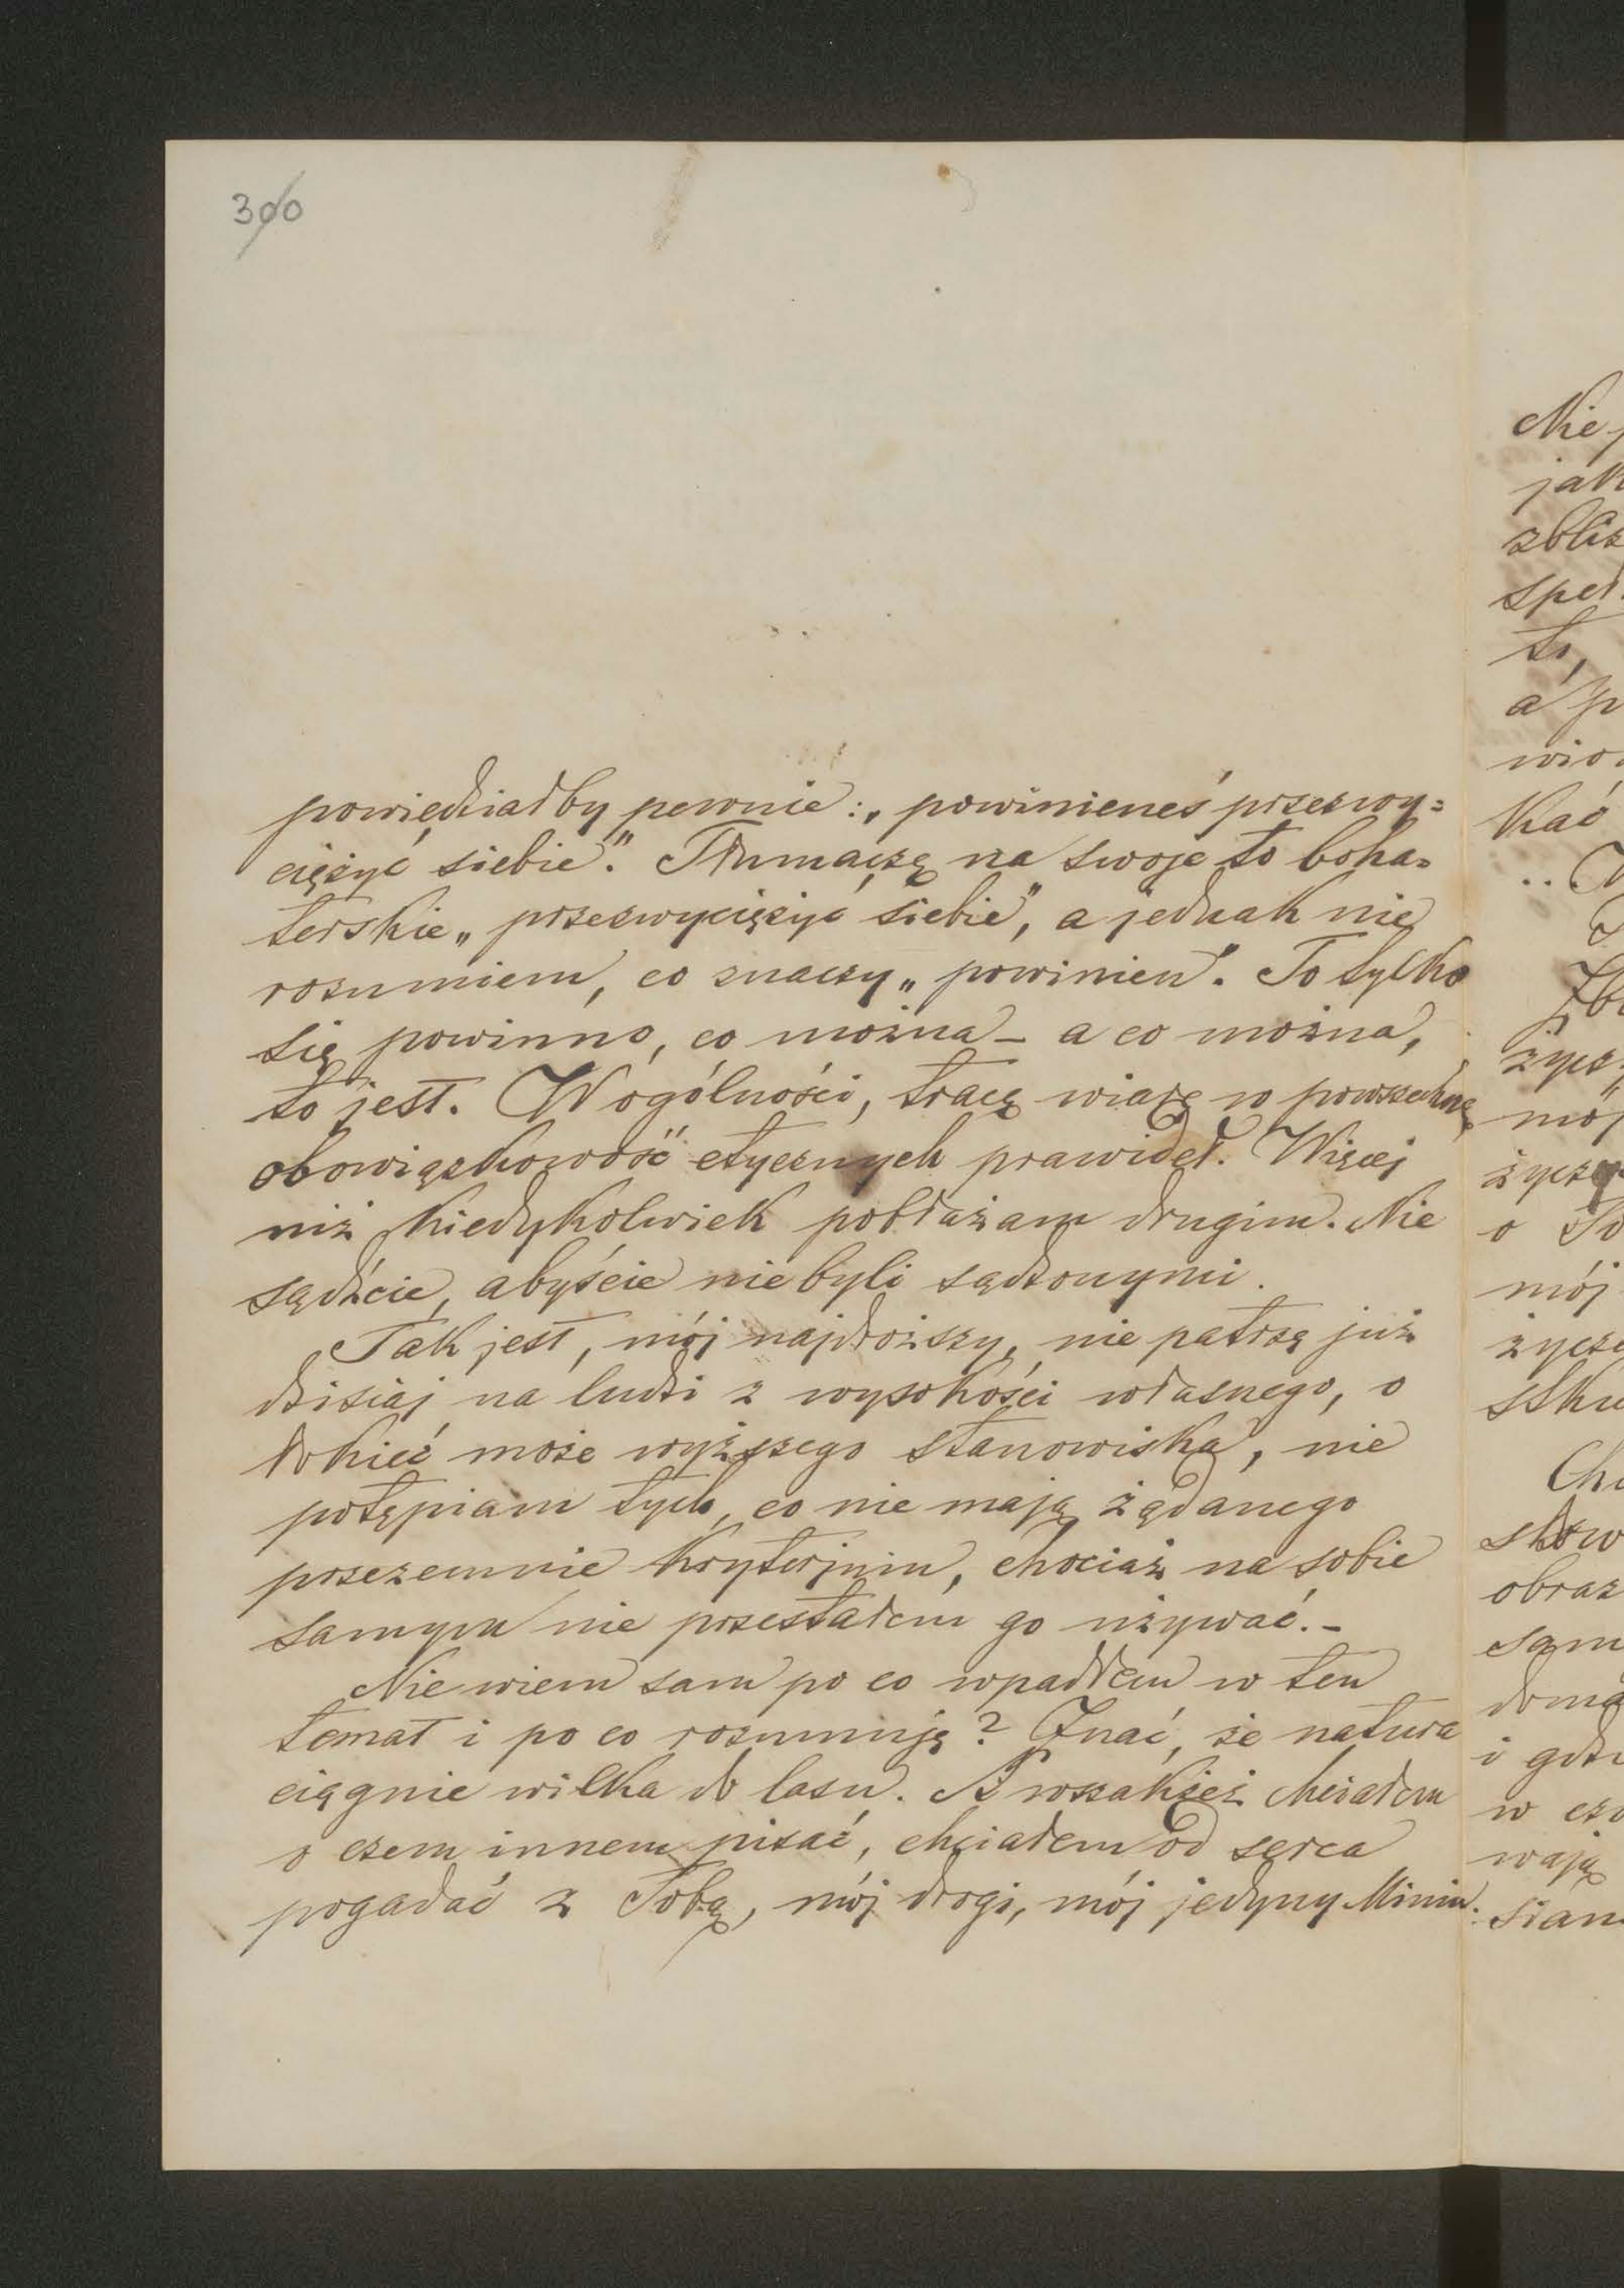 300
powiedziałby pewnie: „powinieneś przezwy=
ciężyć siebie". Tłumaczę na swoje to boha=
terskie „przezwyciężyć siebie", a jednak nie
rozumiem, co znaczy „powinien". To tylko
się powinno, co można – a co można,
to jest. W ogólności, tracę wiarę w powszechną
obowiązkowość etycznych prawideł. Więcej
niż kiedykolwiek pobłażam drugim. Nie
sądźcie, abyście nie byli sądzonymi.
Tak jest, mój najdroższy, nie patrzę już
dzisiaj na ludzi z wysokości własnego, o
łokieć może wyższego stanowiska, nie
potępiam tych, co nie mają żądanego
przezemnie kryterjum, chociaż na sobie
samym nie przestałem go używać. –
Nie wiem sam po co wpadłem w ten
temat i po co rozumuję? Znać, że natura
ciągnie wilka do lasu. A wszakżeż chciałem
o czem innem pisać, chciałem od serca
pogadać z Tobą, mój drogi, mój jedyny Miniu.
Nie
jak
zbliż
speł
to,
a p
wio
kać
życz
mój
życzę
o To
mój
życze
sku
słow
obraz
sam
i gdzi
w
wają